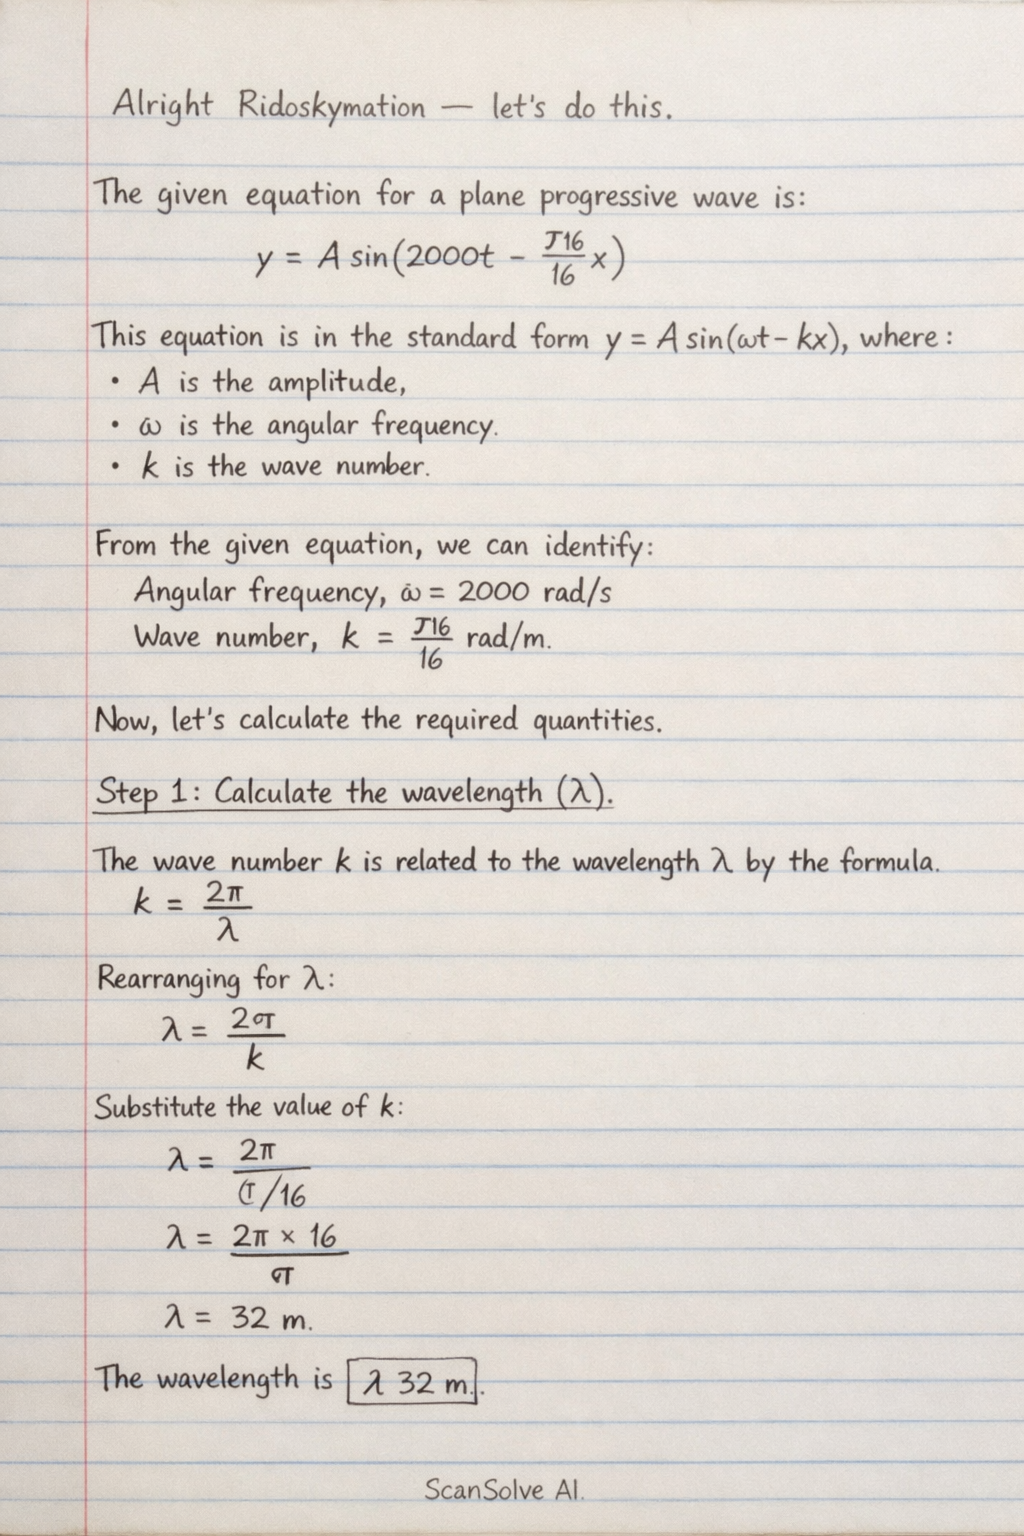 Alright Ridoskymation — let's do this.
The given equation for a plane progressive wave is:
y = A sin(2000t - J16/16 x)
This equation is in the standard form y = A sin(ωt - kx), where:
• A is the amplitude,
• ω is the angular frequency.
• k is the wave number.
From the given equation, we can identify:
Angular frequency, ω = 2000 rad/s
Wave number, k = J16/16 rad/m.
Now, let's calculate the required quantities.
Step 1: Calculate the wavelength (λ).
The wave number k is related to the wavelength λ by the formula.
k = 2π/λ
Rearranging for λ:
λ = 2σT/k
Substitute the value of k:
λ = 2π
/16
λ = 2π × 16
λ = 32 m.
The wavelength is λ 32 m.
ScanSolve AI.